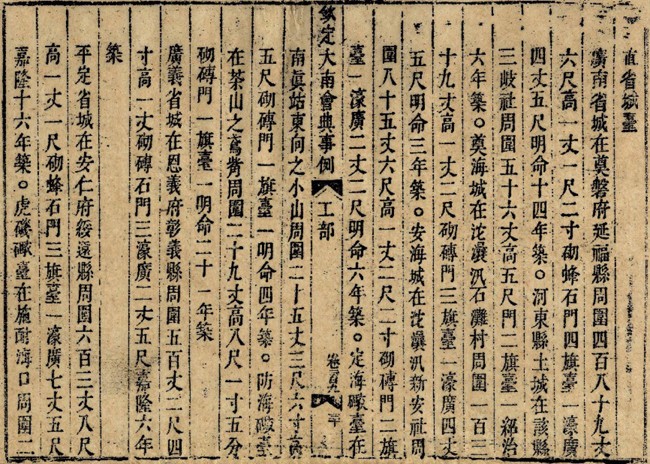 直省城臺
廣南省城在奠磐府延福縣周圍四百八十九丈
六尺高一丈一尺二寸砌蜂石門四旗臺一濠廣
四丈五尺明命十四年築。河東縣土城在該縣
三歧社周圍五十六丈高五尺門二旗臺一紹治
六年築。奠海城在沱㶞汛石灘村周圍一百三
十九丈高一丈二尺砌磚門三旗臺一濠廣四丈
五尺明命三年築。安海城在沱㶞汛新安社周
圍八十五丈六尺高一丈二尺二寸砌磚門二旗
臺一濠廣二丈二尺明命六年築。定海礮臺在
欽定大南會典事例 工部 卷
南眞站東向之小山周圍二十五丈三尺六寸高
五尺砌磚門一旗臺一明命四年築。防海礮臺
在茶山之左周圍二十九丈高八尺一寸五分
砌磚門一旗臺一明命二十一年築
廣義省城在思義府彰義縣周圍五百丈二尺四
寸高一丈砌磚石門三濠廣二丈五尺嘉隆六年
築
平定省城在安仁府綏遠縣周圍六百三丈八尺
高一丈一尺砌蜂石門三旗臺一濠廣七丈五尺
嘉隆十六年築。虎磯礮臺在施耐海口周圍二